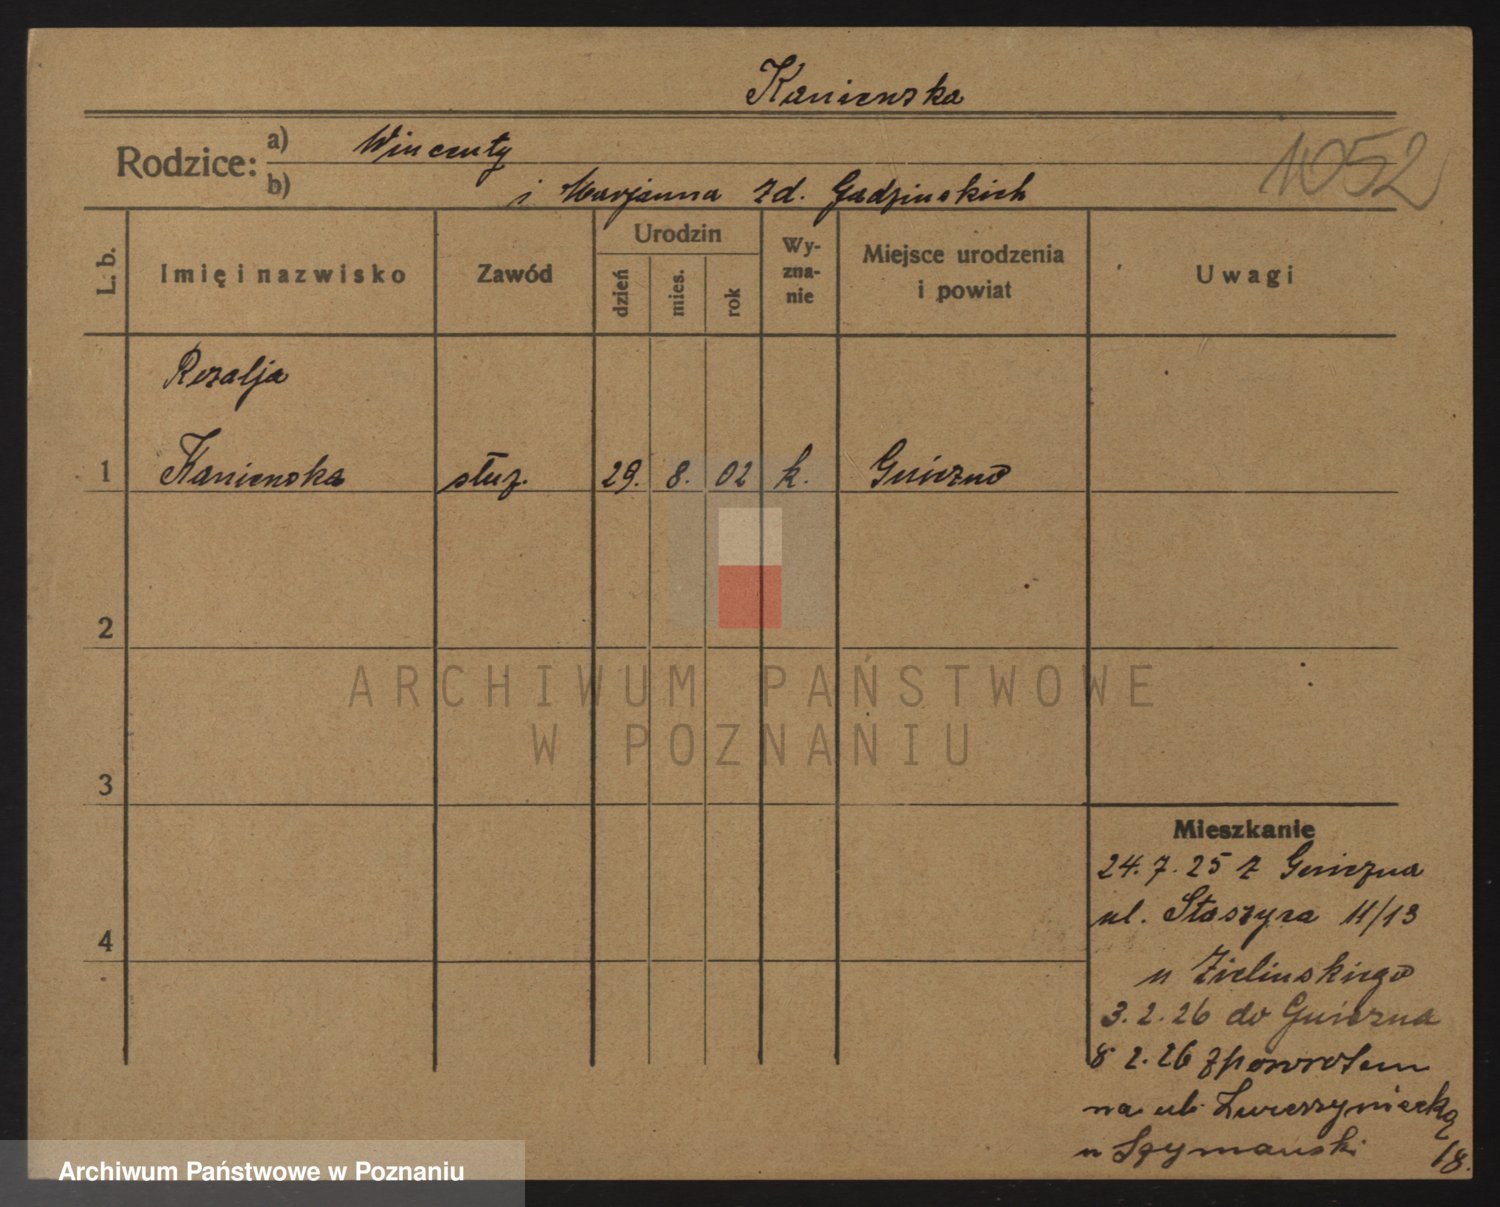 Kaniewska
1052
Rodzice: a) Wincenty
b) i Marjanna zd. Gadzińskich
L. b.
Imię i nazwisko
Zawód
Urodzin
dzień
mies.
rok
Wy-
zna-
nie
Miejsce urodzenia
i powiat
Uwagi
Rozalja
1 Kaniewska służ. 29. 8. 02 k. Gniezno
2
3
4
Mieszkanie
24.7.25 z Gniezna
ul. Staszyca 11/13
u Zielińskiego
3.2.26 do Gniezna
8 2.26 zpowrotem
na ul. Zwierzyniecką
u Szymański 18.
ARCHIWUM PAŃSTWOWE
W POZNANIU
Archiwum Państwowe w Poznaniu